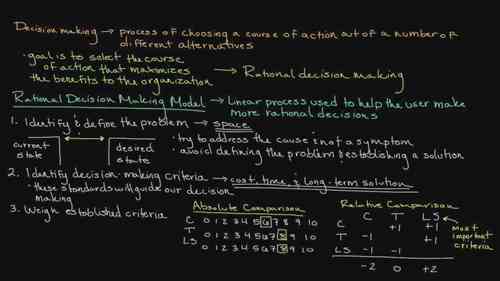 Decision making → process of choosing a course of action out of a number of
different alternatives
· goal is to select the course
of action that maximizes
the benefits to the organization → Rational decision making
Rational Decision Making Model → Linear process used to help the user make
more rational decisions
1. Identify & define the problem → space
current
state
desired
state
· try to address the cause & not a symptom
· avoid defining the problem & establishing a solution
2. Identify decision-making criteria → cost, time, & long-term solution
· these standards will guide our decision
making
3. Weigh established criteria
Absolute Comparison
C 0 1 2 3 4 5 6 7 8 9 10
T 0 1 2 3 4 5 6 7 8 9 10
LS 0 1 2 3 4 5 6 7 8 9 10
Relative Comparison
C T LS
C +1 +1
T -1 +1
LS -1 -1
-2 0 +2
Most
important
criteria